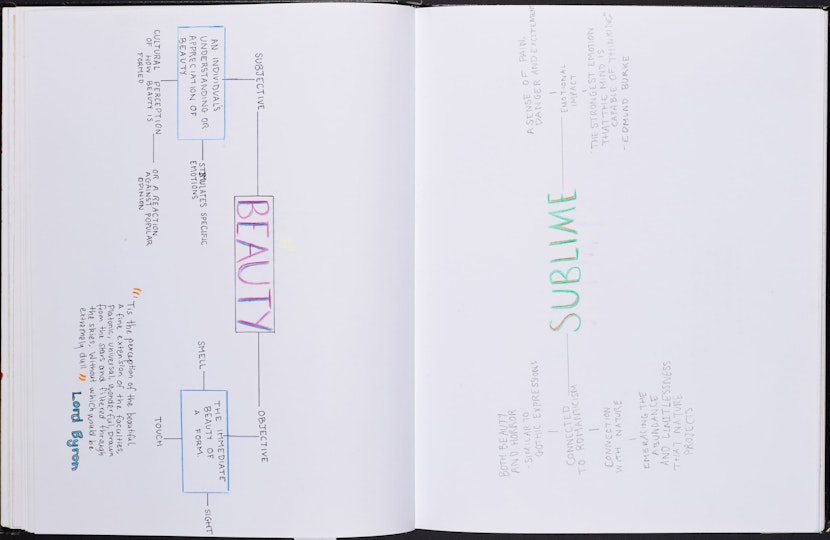 BEAUTY
SUBJECTIVE
AN INDIVIDUALS
UNDERSTANDING OR
APPRECIATION OF
BEAUTY
CULTURAL PERCEPTION
OF HOW BEAUTY IS
FORMED
OR A REACTION
AGAINST POPULAR
OPINION
STIMULATES SPECIFIC
EMOTIONS
OBJECTIVE
THE IMMEDIATE
BEAUTY OF
A FORM.
SMELL
TOUCH
SIGHT
"'Tis the perception of the beautiful
A fine extension of the faculties,
Platonic, universal, wonderful, Drawn
from the stars and filtered through
the skies, Without which would be
extremely dull"
Lord Byron
SUBLIME
EMOTIONAL
IMPACT
A SENSE OF PAIN,
DANGER AND EXCITEMENT
"THE STRONGEST EMOTION
THAT THE MIND IS
CAPABLE OF THINKING"
- EDMUND BURKE
CONNECTED
TO ROMANTICISM
SIMILAR TO
GOTHIC EXPRESSIONS
BOTH BEAUTY
AND HORROR
CONNECTION
WITH NATURE
EMBRACING THE
ABUNDANCE
AND LIMITLESSNESS
THAT NATURE
PROJECTS